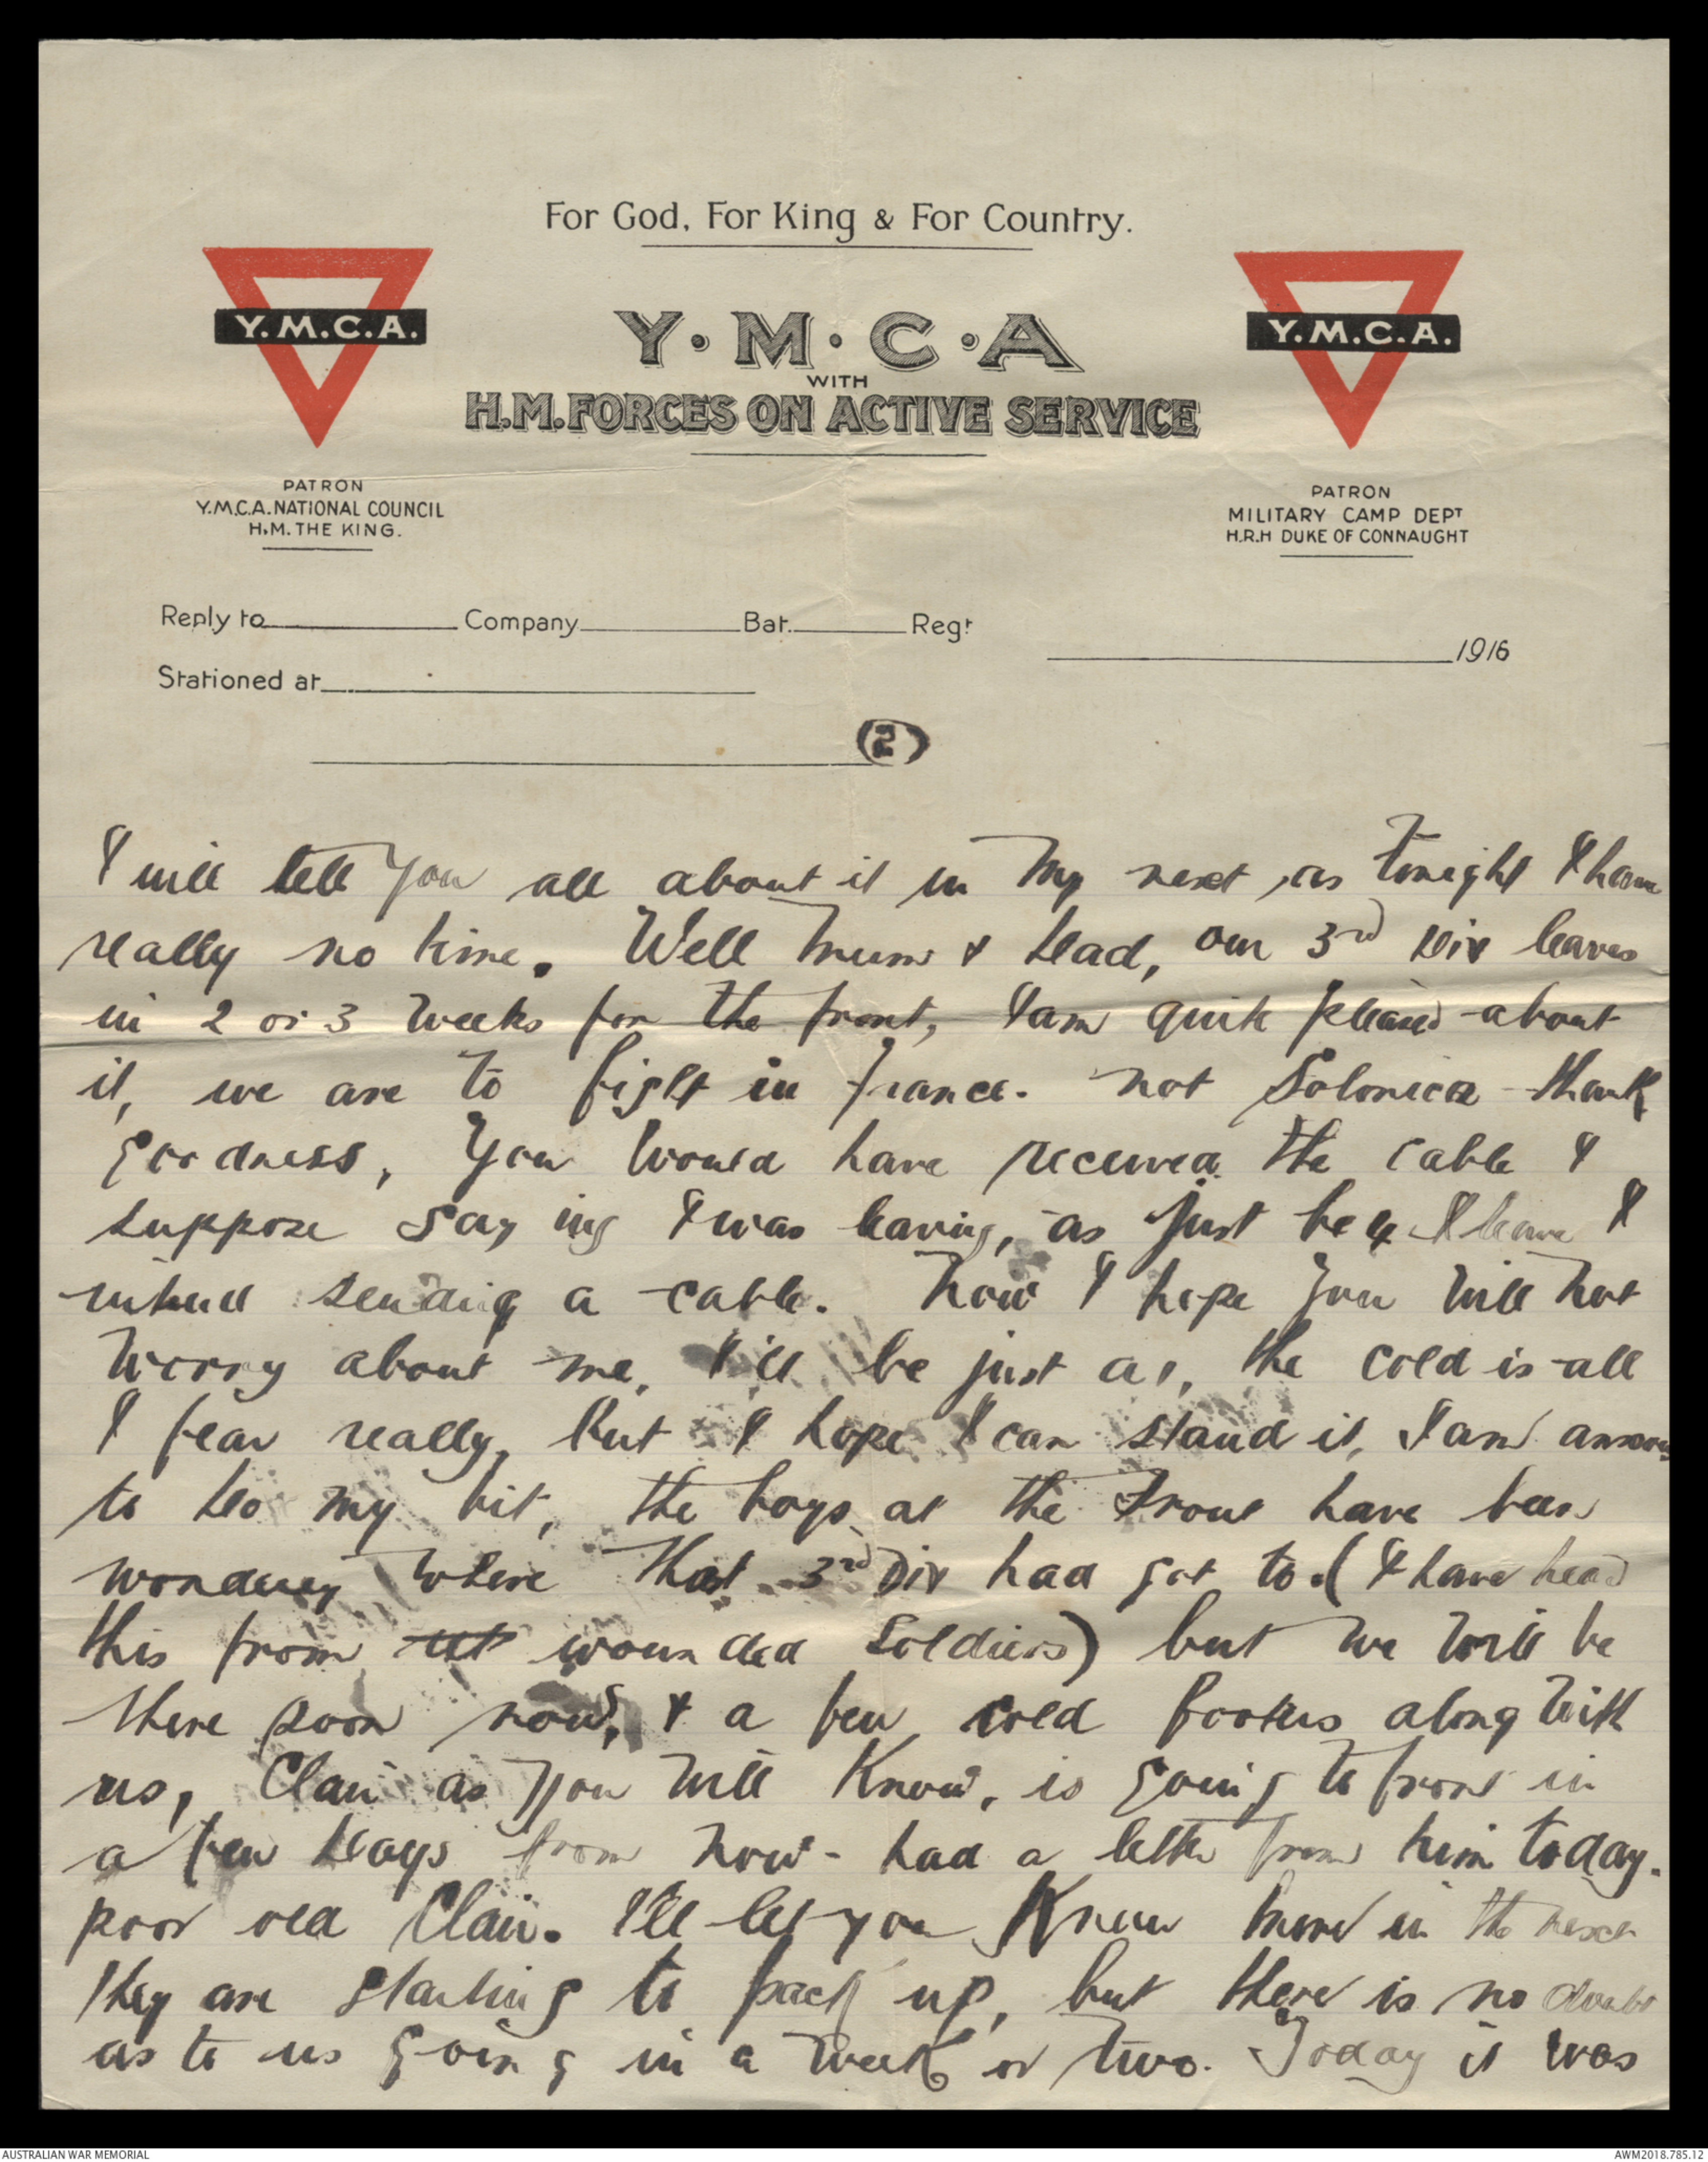 For God, For King & For Country.
Y.M.C.A.
Y.M.C.A
WITH
H.M. FORCES ON ACTIVE SERVICE
Y.M.C.A.
PATRON
Y.M.C.A. NATIONAL COUNCIL
H.M. THE KING.
PATRON
MILITARY CAMP DEPT
H.R.H DUKE OF CONNAUGHT
Reply to Company Bat. Regt
1916
Stationed at
(2)
I will tell you all about it in my next, as tonight I have
really no time. Well mum & dad, our 3rd Div leaves
in 2 or 3 weeks for the front, I am quite pleased about
it, we are to fight in France. not Solonica thank
goodness, you would have received the cable I
suppose saying I was leaving, as just be4 I leave I
intend sending a cable. Now I hope you will not
worry about me, I'll be just as, the cold is all
I fear really, but I hope I can stand it, I am
to do my bit, the boys at the front have been
wondering where that 3rd Div had got to. (I have head
this from wounded soldiers) but we will be
there soon now, & a few cold footers along with
us, Clair as you will know, is going to front in
a few days from now - had a letter from him today.
poor old Clair. I'll let you know more in the next
they are starting to pack up, but there is no doubt
as to us going in a week or two. Today it was
AUSTRALIAN WAR MEMORIAL
AWM2018.785.12